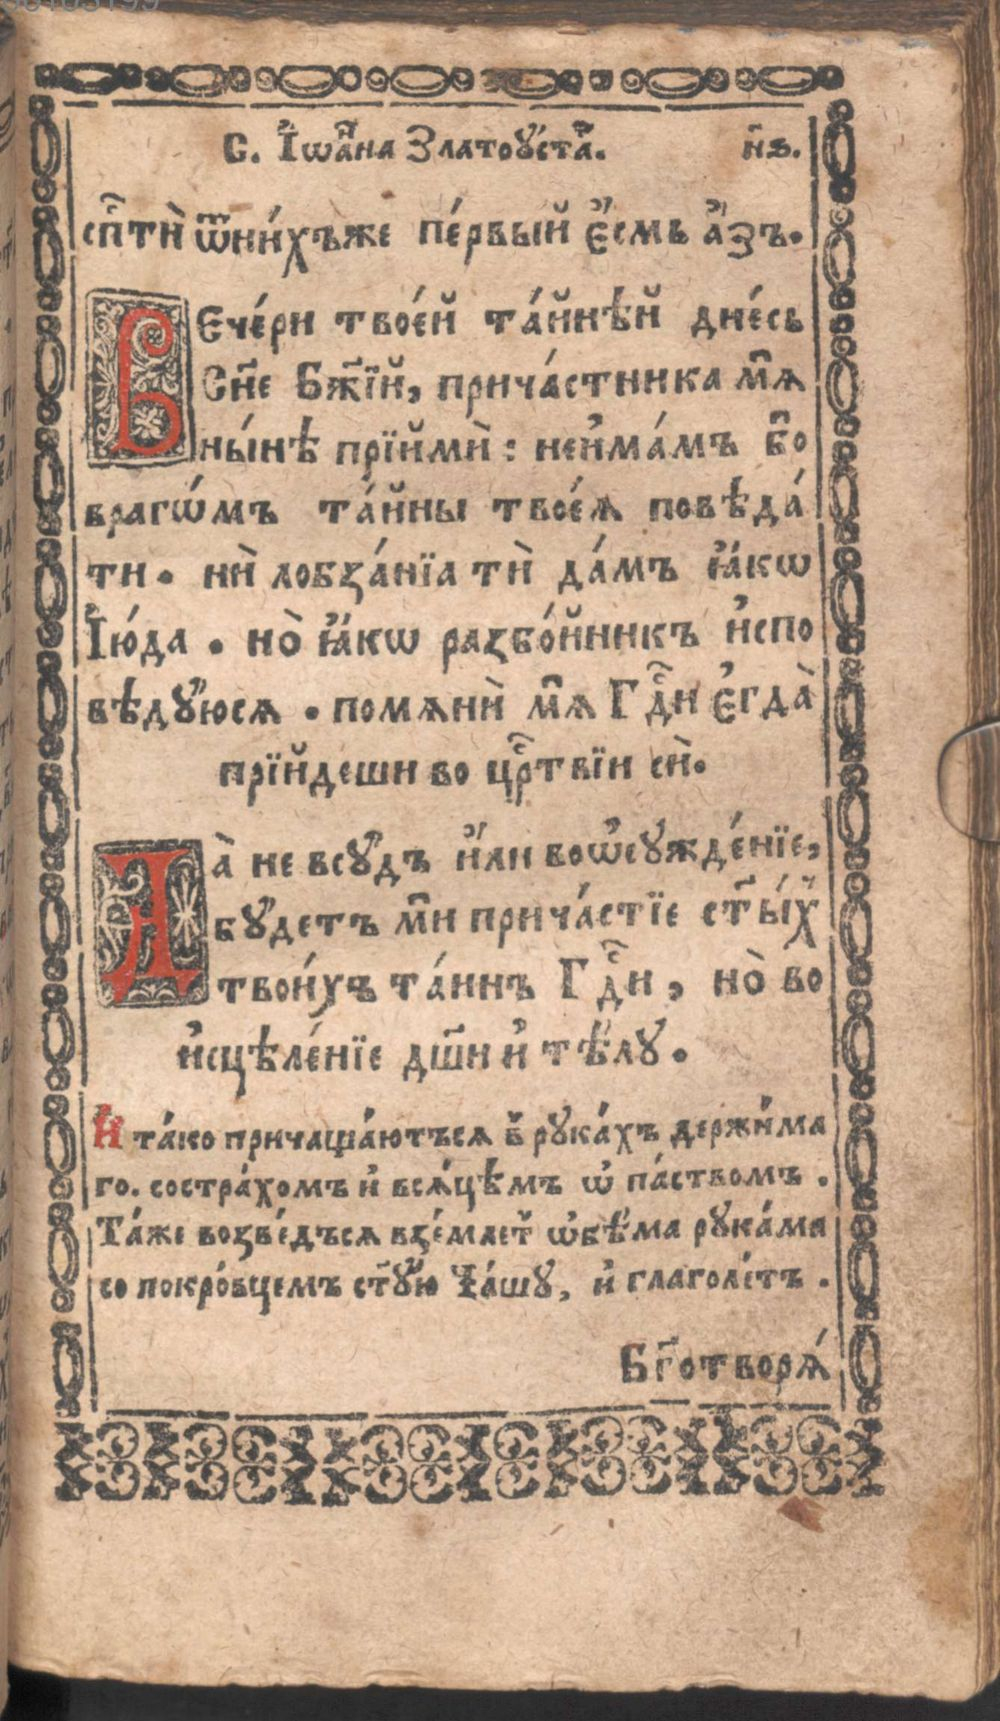 С. І҆ѡа҆́нна Златоꙋ́ста. н҃в.
сп҃сти̑ ѿни́хъже пе́рвый є҆́смь а҆́зъ.
Вечери твое́й та́йнѣй дне́сь
Сн҃е Бж҃їй, прича́стника мѧ̀
ны́нѣ прїйми̑: неи҆ма́мъ бо̀
враго́мъ та́йны твоеѧ̀ повѣда́
ти. ни̑ лобза́нїѧ ти̑ да́мъ ꙗ҆́кѡ
І҆ю́да. но̀ ꙗ҆́кѡ разбо́йникъ и҆спо
вѣ́дꙋюсѧ. помѧни̑ мѧ̀ Гд҇и є҆гда̀
прїйдеши во цр҇твїи си̑.
Да̀ не всꙋ́дъ и҆́ли воѡ҆сꙋжде́нїе,
бꙋ́детъ мѝ прича́стїе ст҃ы́хъ
твои́хъ та́инъ Гд҇и, но̀ во
и҆сцѣле́нїе дш҃и и҆ тѣ́лꙋ.
И҆ та́ко причаща́ютъсѧ в̾ рꙋка́хъ держи́ма
го. состра́хомъ и҆ всѧ́цѣмъ ѡ҆ па́ствомъ.
Та́же возве́дъсѧ взе́млет̾ ѡ҆бѣ́ма рꙋка́ма
со покро́вцемъ ст҃ꙋ́ю Ча́шꙋ, и҆ глаголе́тъ.
Бг҃отворѧ́